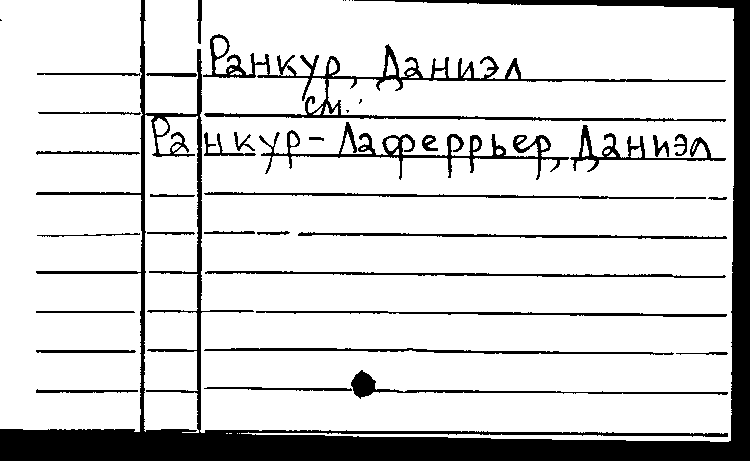 Ранкур, Даниэл
см.
Ранкур-Лаферрьер, Даниэл